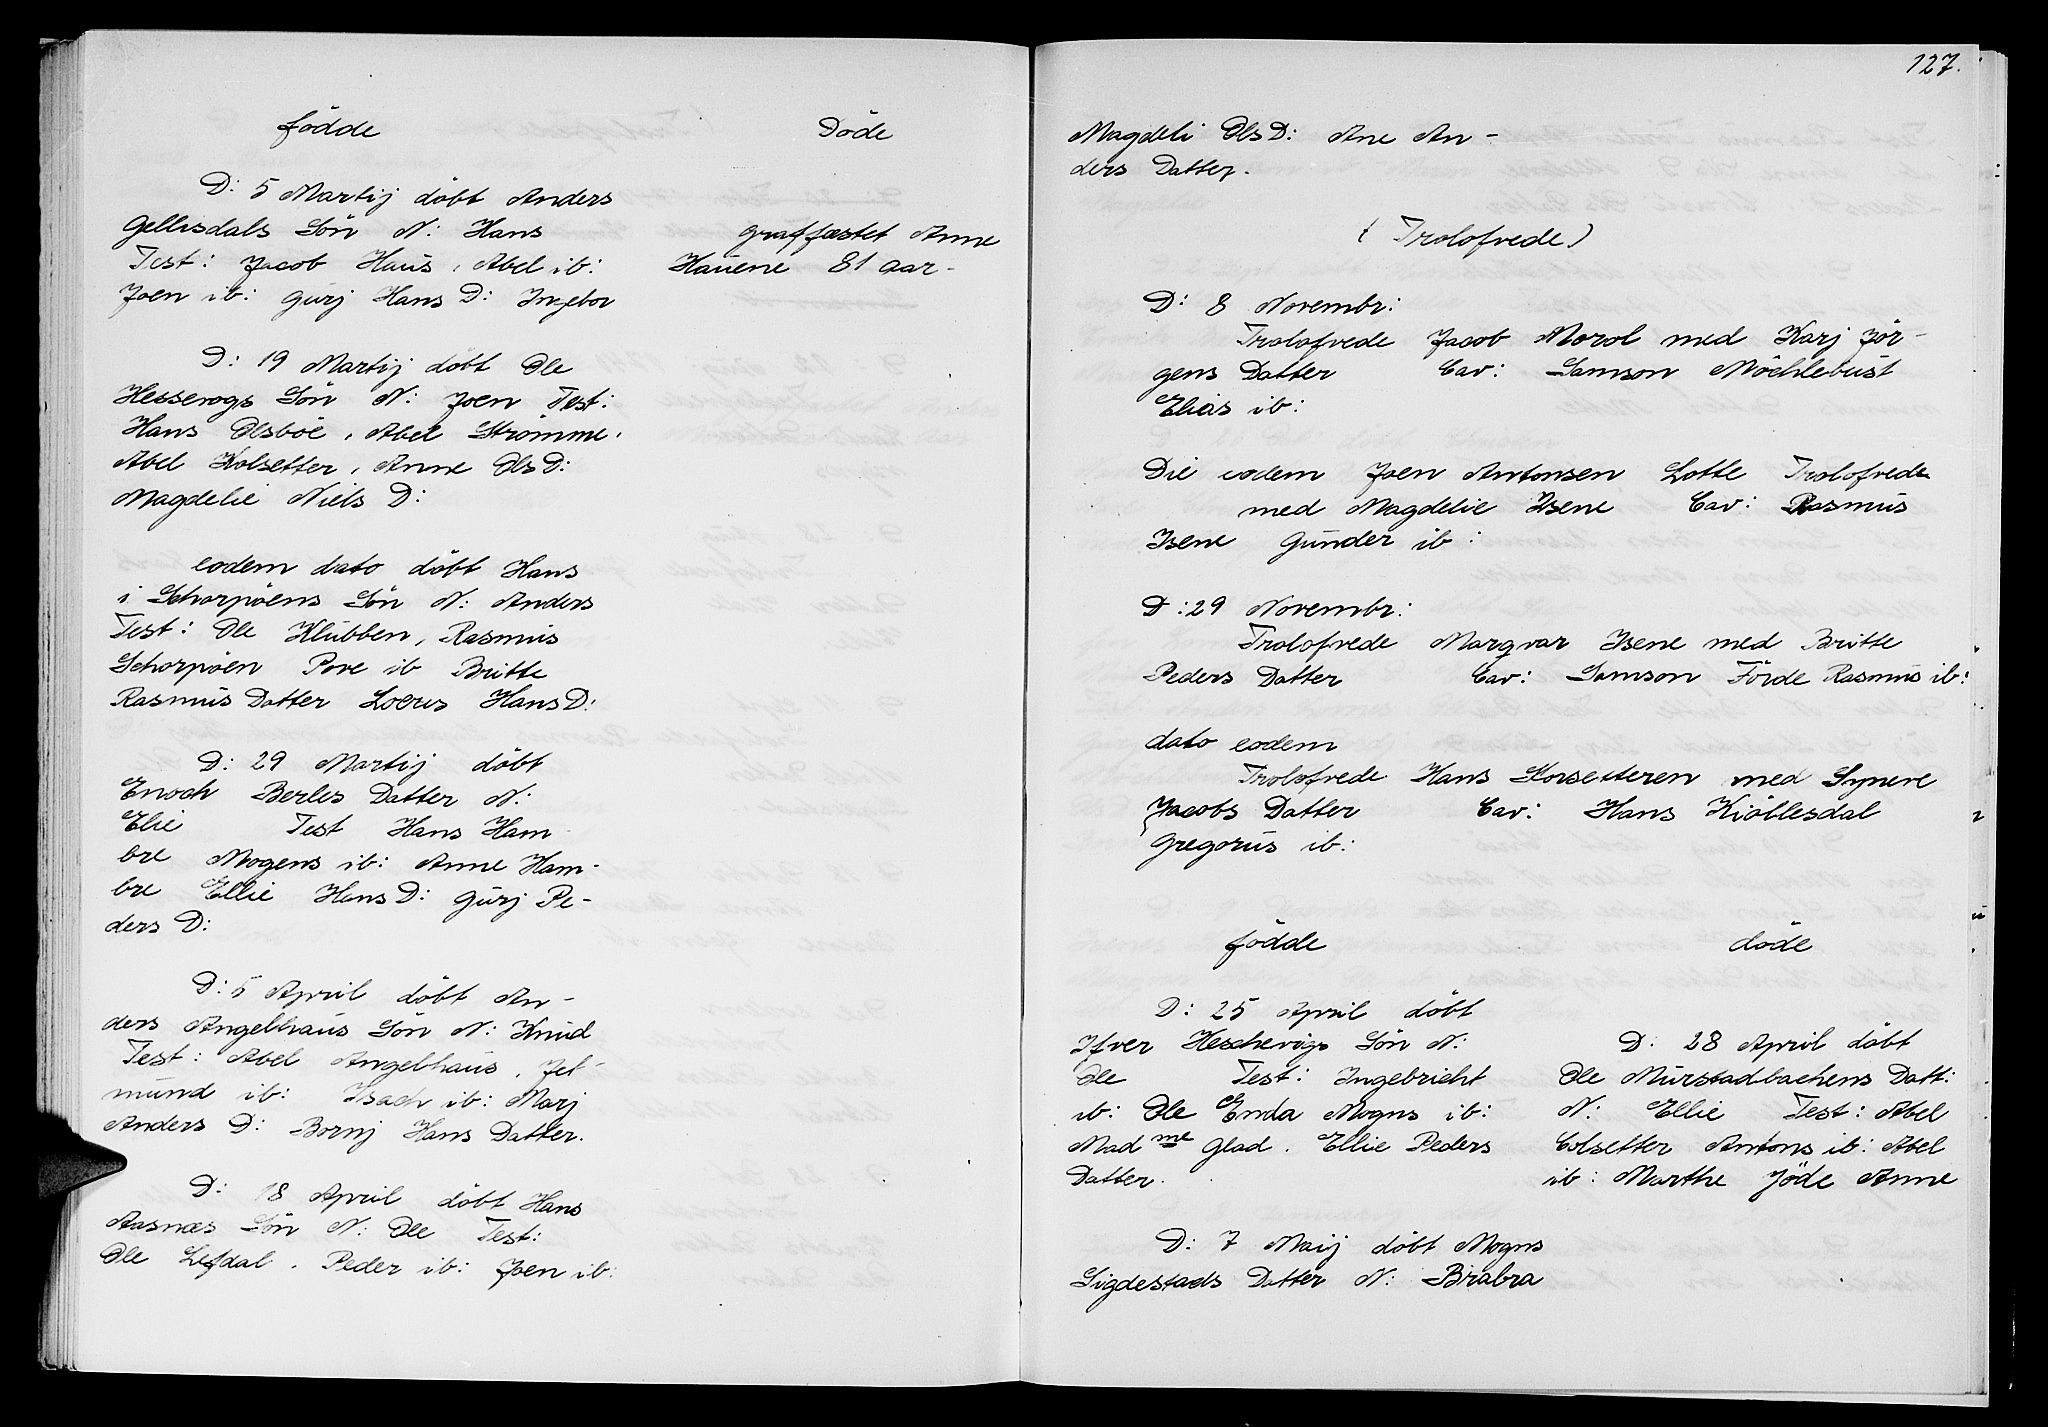 födde
D: 5 Martij döbt Anders
Gellisdals Sön N: Hans
Test: Jacob Haüs, Abel ib:
Joen ib: Gürj Hans D: Ingebor
D: 19 Martij döbt Ole
Hessevogs Sön N: Joen Test:
Hans Olsböe, Abel Strömme,
Abel Kolsetter, Anne Ols D:
Magdelie Niels D:
eodem dato döbt Hans
i Schorpöens Sön N: Anders
Test: Ole Klübben, Rasmüs
Schorpöen Pove ib Britte
Rasmüs Datter Hans D:
D: 29 Martij döbt
Enoch Berles Datter N:
Elie Test Hans Ham
bre Mogens ib: Anne Ham-
bre Ellie Hans D: Gürj Pe-
ders D:
D: 5 April döbt An-
ders Angelhaüs Sön N: Knüd
Test: Abel Angelhaüs, Jet-
münd ib: Isach ib: Marj
Anders D: Bornj Hans Datter.
D: 18 April döbt Hans
Aasnæs Sön N: Ole Test:
Ole Lefdal, Peder ib: Joen ib:
Döde
graffæstet Anne
Haüene 81 aar-
127.
Magdeli Ols D: Ane An-
ders Datter.
(Trolofvede)
D: 8 Novembr:
Trolofvede Jacob Morol med Karj Jör-
gens Datter Cav: Samson Möchlebüst
Elias ib:
Die eodem Joen Antonsen Lotte Trolofvede
med Magdelie Isene Cav: Rasmüs
Isene Günder ib:
D: 29 Novembr:
Trolofvede Marqvar Isene med Britte
Peders Datter Cav: Samson Förde Rasmüs ib:
dato eodem
Trolofvede Hans Horsetteren med Syneve
Jacobs Datter Cav: Hans Kiöllesdal
Gregorüs ib:
födde
D: 25 April döbt
Ifver Heschevigs Sön N:
Ole Test: Ingebricht
ib: Ole Enda Mogns ib:
Mad me Glad. Ellie Peders
Datter.
D: 7 Maij döbt Mogns
Sigdestads Datter N: Brabra
döde
D: 28 April döbt
Ole Mürstadbachens Datt:
N: Ellie Test: Abel
Colsetter Antons ib: Abel
ib: Marthe Jöde Anne